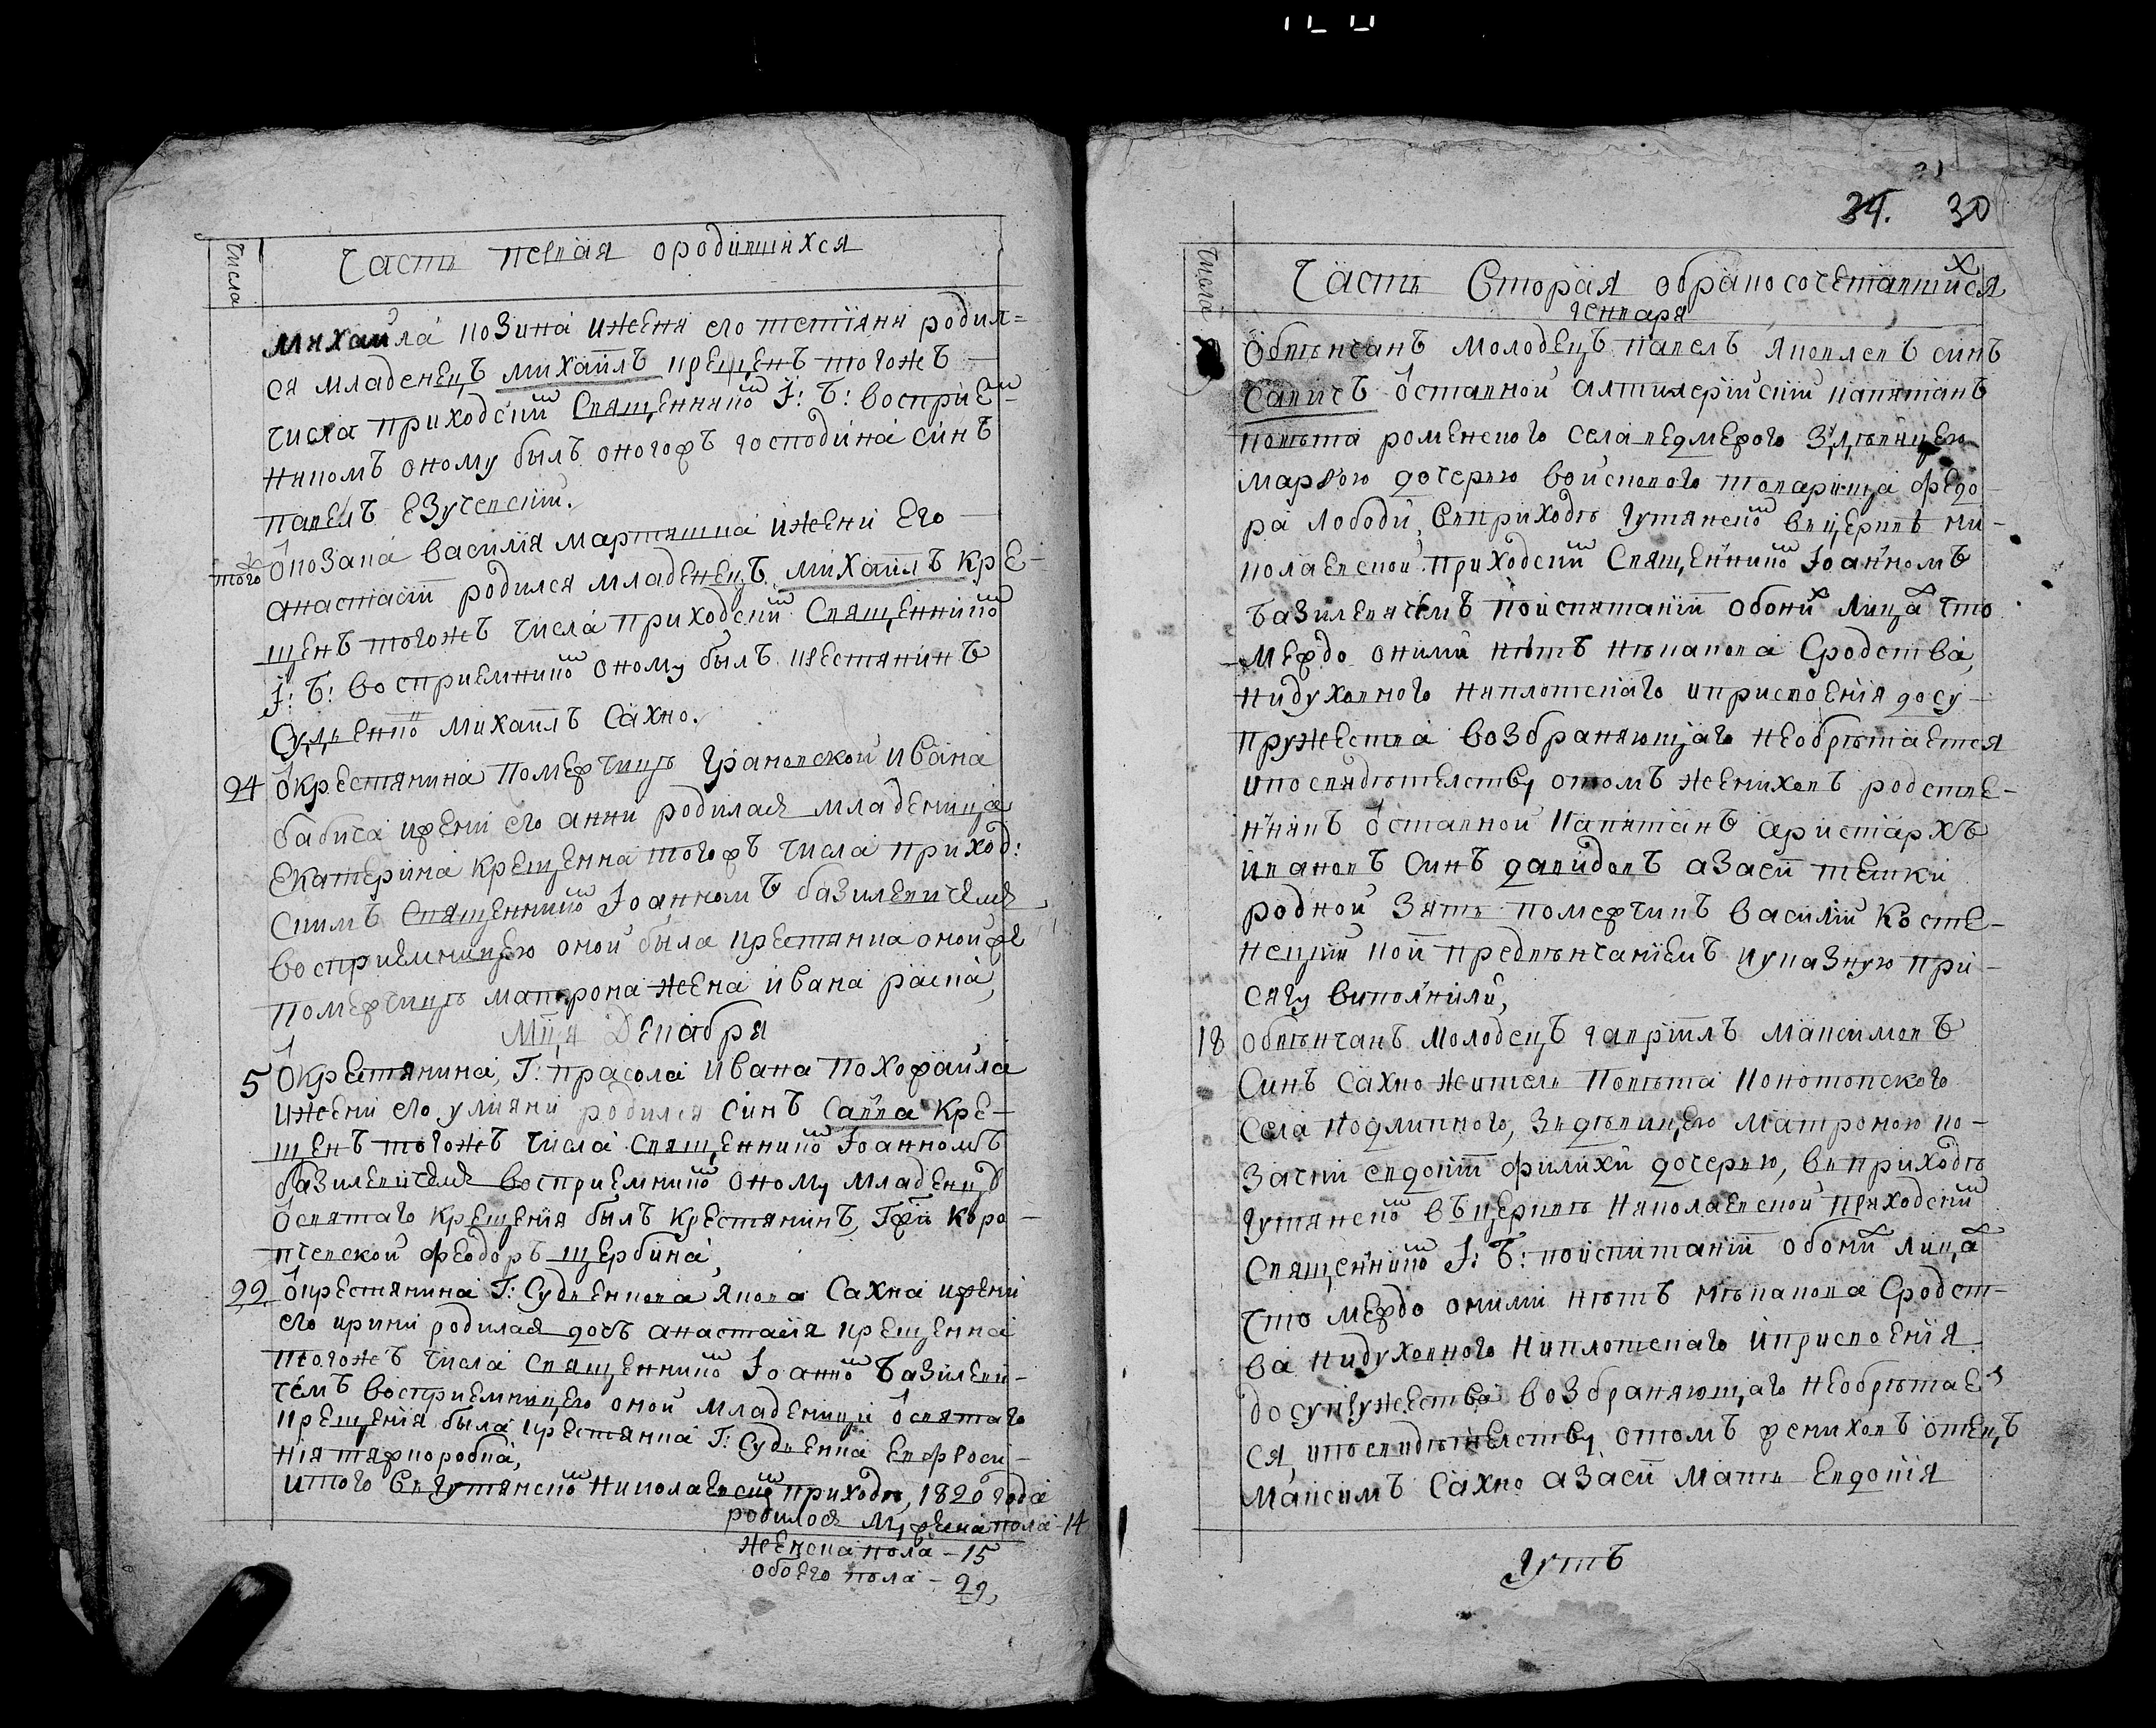 Числа
Часть первая ородившихся
михаила козина ижени его тетіяни родил=
ся младенецъ михаилъ крещенъ тогожъ
числа приходскій Священникъ І: Б: воспріем
никомъ оному былъ оногожъ господина синъ
павелъ
того
Окозака василія мартяша ижени Его
анастасіи родился младенецъ михаилъ кре-
щенъ тогожъ числа приходскій Священникъ
І: Б: восприемникъ оному былъ крестянинъ
Судіенко михаилъ Сахно.
24
Окрестянина помежчици ивана
бабича ижени его анни родилася младеница
Екатерина крещенна тогожъ числа приход:
скимъ Священникъ Іоанномъ базилевичемъ
восприемницею оной была крестянка онойже
помежчици матрона жена ивана раска,
Мця Декабря
5
Окрестянина, Г: прасола ивана похожайла
ижени его улияни родился синъ Савва кре-
щенъ тогожъ числа священникъ Іоанномъ
базилевичемъ восприемникъ оному младенцу
Освятаго крещенія былъ крестянинъ, Гжи коро-
пчевской феодоръ щербина,
22
Окрестянина Г: Судіенкова якова Сахна ижени
его ирини родилася дочъ анастасія крещенна
тогожъ числа священникъ Іоанъ Базилеви-
чемъ восприемницею оной младеници освятаго
крещенія была крестянка Г: Судіенка Евфроси-
нія
итого Вгутянско николаевскій приходѣ, 1820 года
родилося мужеска пола - 14
женска пола - 15
обоего пола - 29,
34. 30
Числа
Часть Вторая обракосочетавшихся
генваря
Обвѣнчанъ молодецъ павелъ яковлевъ синъ
Савичъ Оставной алтилерійскій капитанъ
повѣта роменского села ведмежого Здѣвицею
марѳою дочерью войскового товарища федо-
ра лободи, Вприходѣ гутянско вцеркви ни-
колаевской приходскій Священникъ Іоанномъ
Базилевичемъ поиспитаніи обоихъ лица что
между оними нѣтъ нѣкакова Сродства,
нидуховного ниплотскаго иприсвоенія досу-
пружества возбраняющаго необрѣтается
ипосвидѣтелству отомъ жениховъ родстве-
нникъ Оставной Капитанъ аристархъ
ивановъ Синъ давидовъ азасіи тетки
родной зять помежчикъ василій косте-
нецкій кои предвѣнчаніемъ иуказную при-
сягу виполнили,
18
Обвѣнчанъ молодецъ гавріилъ максимовъ
Синъ Сахно житель повѣта конотопского
села подлипного, Здѣвицею матроною ко-
зачки евдокіи филихи дочерью, вприходѣ
гутянско вѣцеркви николаевской приходскій
Священникъ І: Б: поиспитаніи обоихъ лица
что между оними нѣтъ нѣкакова Сродст-
ва нидуховного ниплотскаго иприсвоенія
досупружества возбраняющаго необрѣтает
ся, ипосвидѣтелству отомъ жениховъ отецъ
максимъ Сахно азасіи мать Евдокія
гутъ